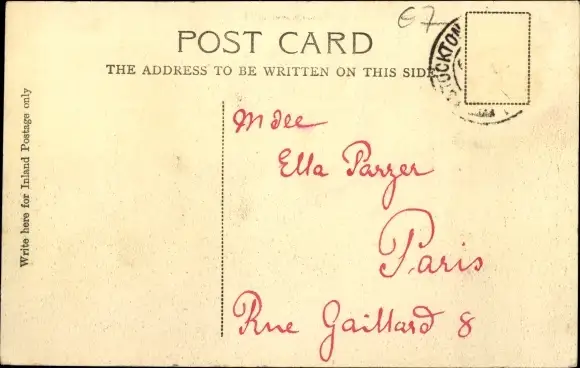 67
POST CARD
THE ADDRESS TO BE WRITTEN ON THIS SIDE
STOCKTON
Write here for Inland Postage only
Mdee
Ella Parzer
Paris
Rue Gaillard 8